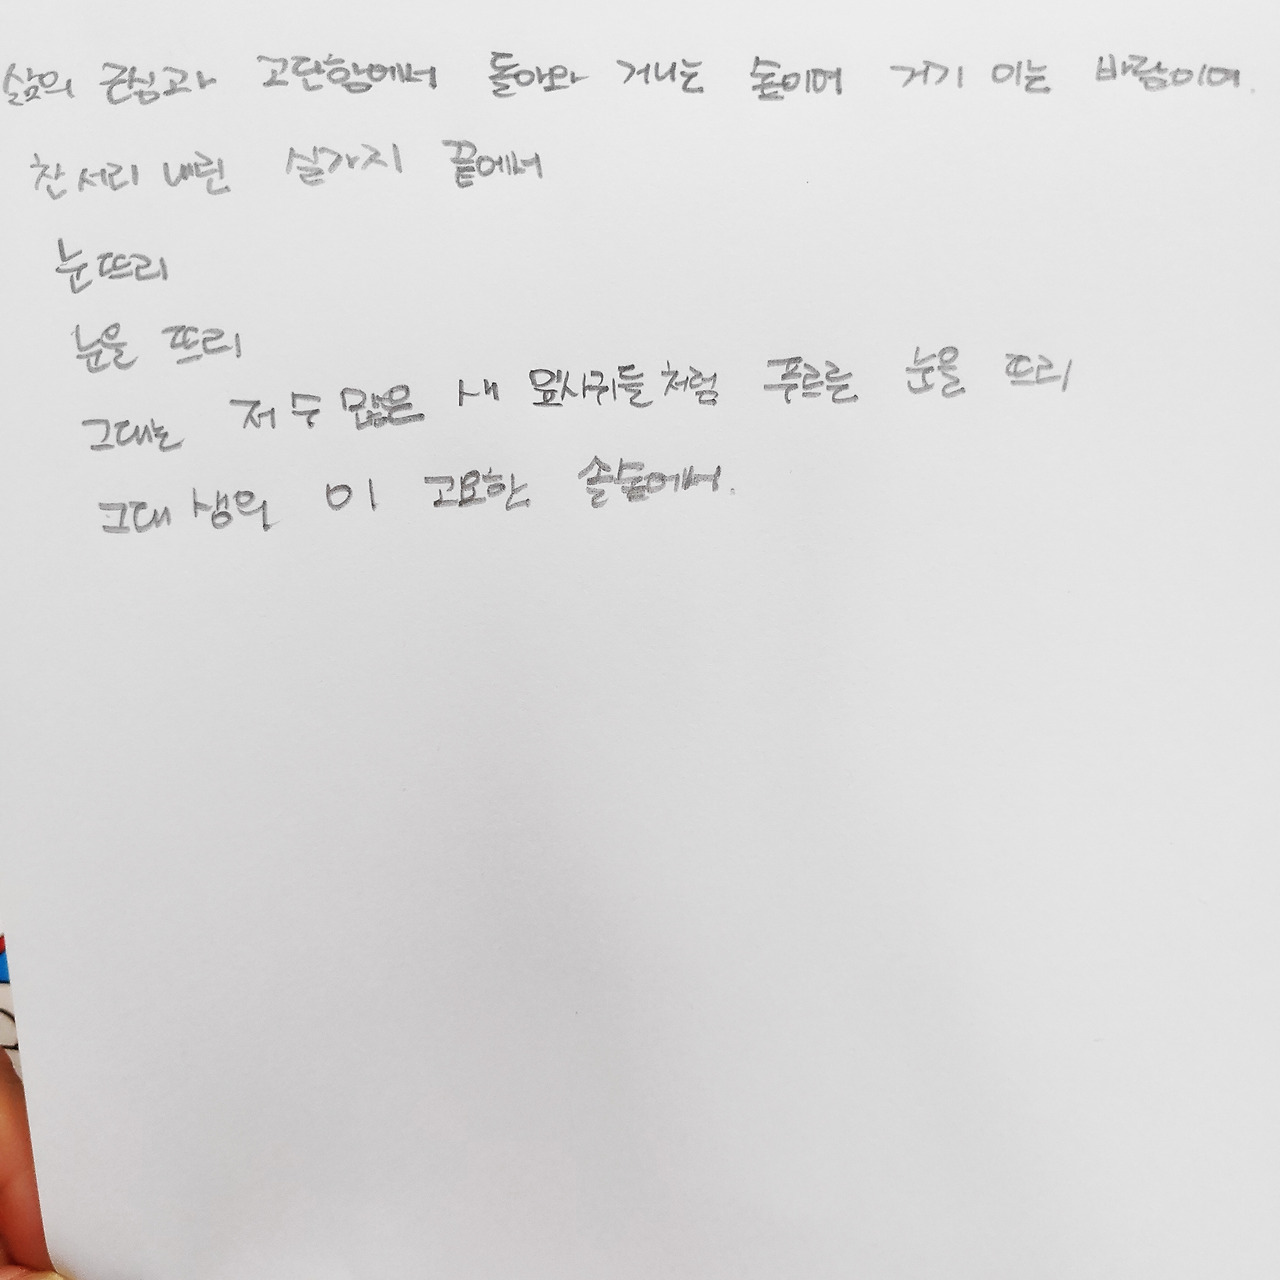 삶의 근심과 고단함에서 돌아와 거니는 숲이여 거기 이는 바람이여.
찬 서리 내린 실가지 끝에서
눈뜨리
눈을 뜨리
그대는 저 수 많은 새 잎사귀들처럼 푸르른 눈을 뜨리
그대 생의 이 고요한 솔숲에서.